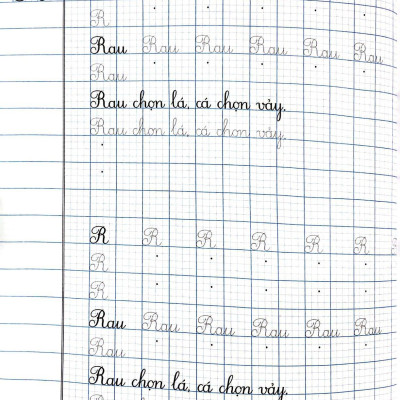 R
Rau Rau Rau Rau Rau Rau
Rau
Rau chọn lá, cá chọn vảy.
Rau chọn lá, cá chọn vảy.
R R R R R R
R
R
Rau Rau Rau Rau Rau Rau
Rau
Rau chọn lá, cá chọn vảy.